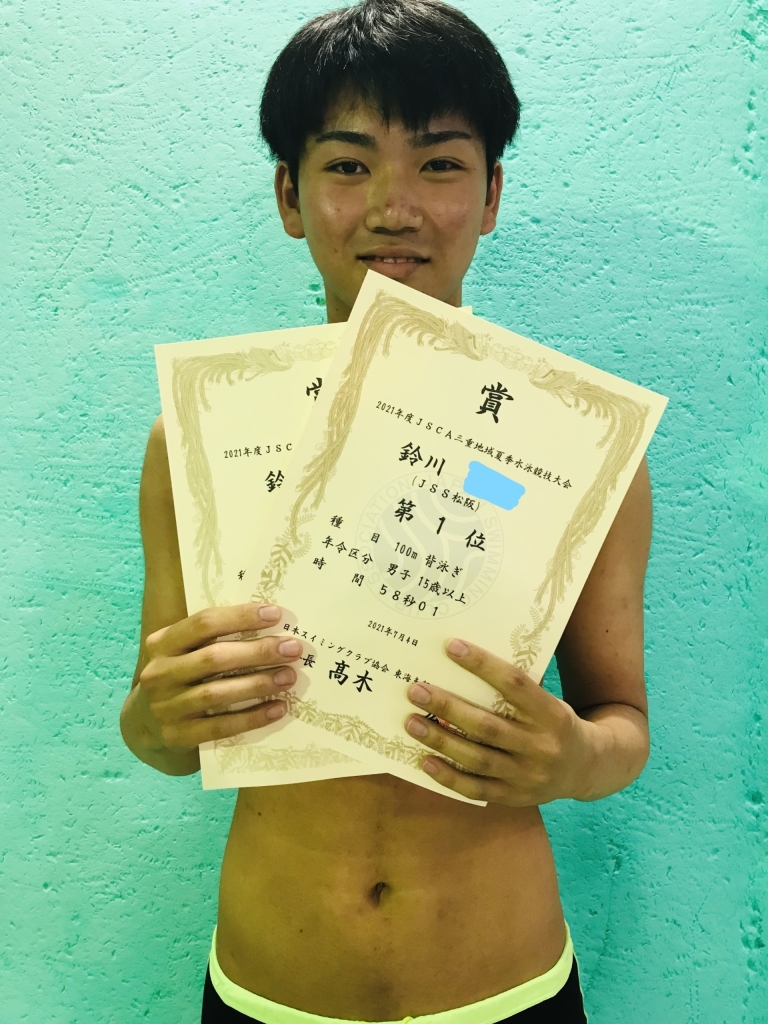 賞
2021年度JSCA三重地域夏季水泳競技大会
鈴川
(JSS松阪)
第1位
種目 100m 背泳ぎ
年令区分 男子 15歳以上
時間 58秒01
2021年7月4日
日本スイミングクラブ協会 東海
長 髙木
賞
2021年度JSC
鈴